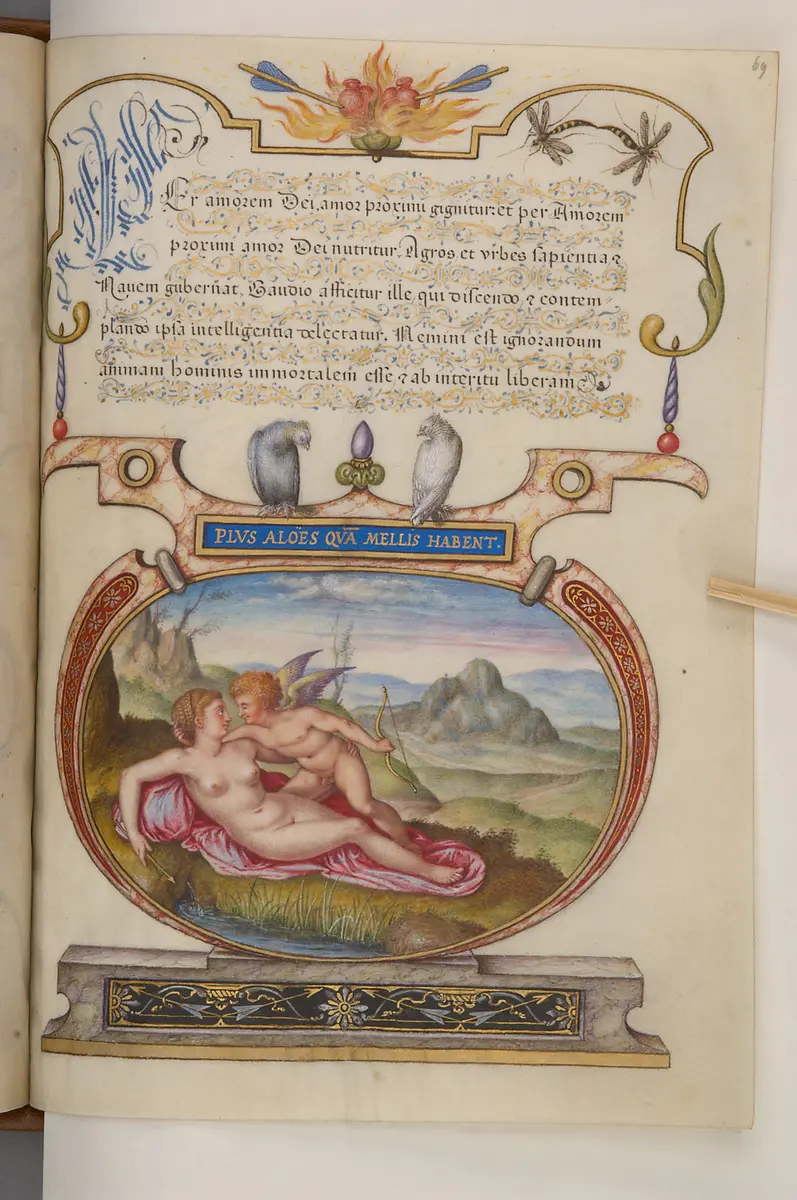 69
Per amorem Dei, amor proximi gignitur: et per Amorem
proximi amor Dei nutritur. Agros et vrbes sapientia ⁊
Nauem gubernat. Gaudio afficitur ille, qui discendo ⁊ contem-
plando ipsa intelligentia delectatur. Nemini est ignorandum
animam hominis immortalem esse, ⁊ ab interitu liberam
PLVS ALOËS QVĀ MELLIS HABENT.